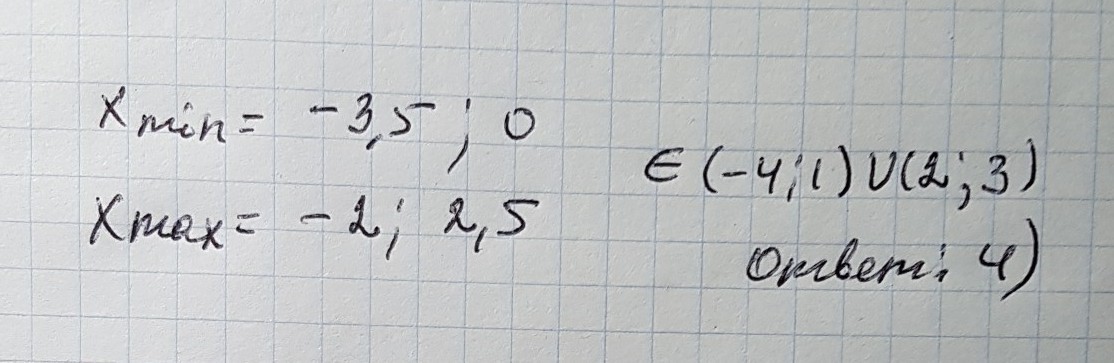 x min = -3,5 ; 0
x max = -2 ; 2,5
∈ (-4; 1) ∪ (2; 3)
Ответ: 4)